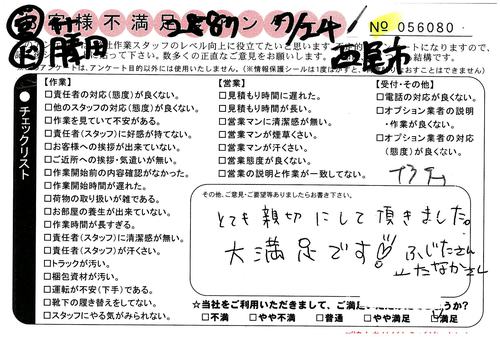 お客様不満足
No 056080
西尾市
作業スタッフのレベル向上に役立てたいと思います。
です。数多くの正直なご意見をお願い
アンケートは、アンケート目的以外には使用いたしません。（※情報保護シールは1度はがすと
チェックリスト
【作業】
□責任者の対応(態度)が良くない。
□他のスタッフの対応(態度)が良くない。
□作業を見ていて不安がある。
□責任者(スタッフ)に好感が持てない。
□お客様への挨拶が出来ていない。
□ご近所への挨拶・気遣いが無い。
□作業開始前の内容確認がなかった。
□作業開始時間が遅れた。
□荷物の取り扱いが雑である。
□お部屋の養生が出来ていない。
□作業時間が長すぎる。
□責任者(スタッフ)に清潔感が無い。
□責任者(スタッフ)が汗くさい。
□トラックが汚い。
□梱包資材が汚い。
□運転が不安(下手)である。
□靴下の履き替えをしてない。
□スタッフにやる気がみられない。
【営業】
□見積もり時間に遅れた。
□見積もり時間が長い。
□営業マンに清潔感が無い。
□営業マンが煙草くさい。
□営業マンが汗くさい。
□営業態度が良くない。
□営業の説明と作業が一致してない。
【受付・その他】
□電話の対応が良くない。
□オプション業者の説明
・作業が良くない。
□オプション業者の対応
(態度)が良くない。
その他、ご意見・ご要望等ありましたらお書き下さい。
とても親切にして頂きました。
大満足です!
ふじたさん
たなかさん
☆当社をご利用いただきまして、ご満足
うか?
□不満 □やや不満 □普通 □やや満足 □満足